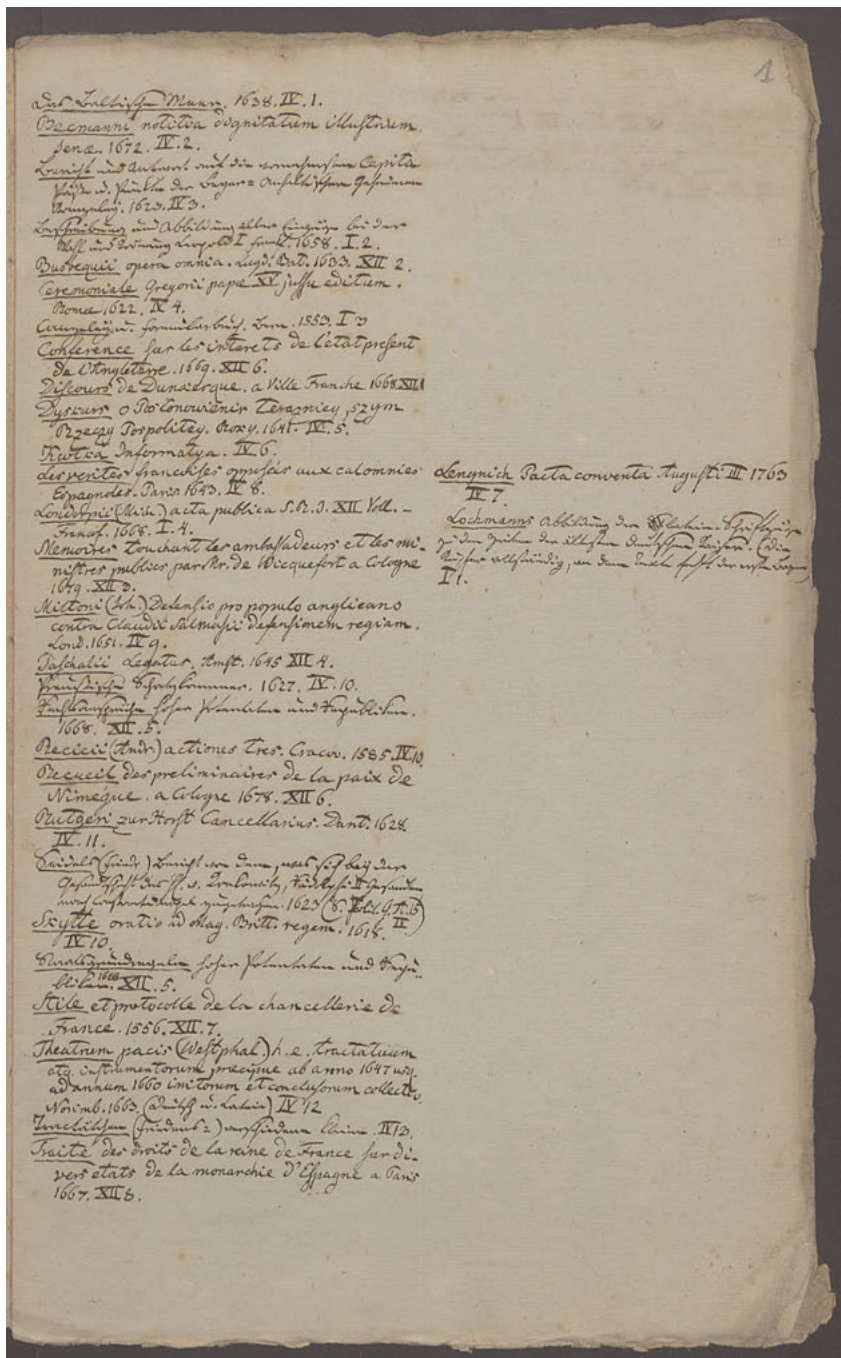 1
Das Baltische Meer. 1638. IV. 1.
Becmanni notitia dignitatum illustrium.
Jenæ. 1672. IV. 2.
Bericht und Antwort auf die vornehmsten Capita
Päße u. Puncte der Bayer= Anhaltischen Geheimen
Canzeley. 1623. IV 3.
Beschreibung und Abbildung aller Einzüge bei der
Wahl und Krönung Leopold I Frankf. 1658. I. 2.
Busbequii opera omnia. Lugd. Bat. 1633. XII 2.
Ceremoniale Gregorii papæ XV jussu editum.
Romæ 1622. IV 4.
Canzeley u. Formularbuch. Bern. 1553. I 3
Conference sur les interets de l'état present
de l'Angleterre. 1669. XII 6.
Discours de Dunkerque. a Ville Franche 1668. XII 1
Dyskurs o Postanowieniu terazniey, szym
Rzeczy Pospolitey. Roky. 1641. IV. 5.
Krotka Informatya. IV 6.
Les verites francoises opposées aux calomnies
Espagnoles. Paris 1643. IV 8.
Londorpii (Mich.) acta publica S. R. I. XII Voll. –
Francf. 1668. I. 4.
Memoires touchant les ambassadeurs et les mi-
nistres publics par Mr. de Wicquefort a Cologne
1679. XII 3.
Miltoni (Joh.) Defensio pro populo anglicano
contra Claudii Salmasii defensionem regiam.
Lond. 1651. IV 9.
Paschalii Legatus. Amst. 1645 XII 4.
Preußische Schatzkammer. 1627. IV. 10.
hoher Potentaten und Republiken.
1668. XII. 5.
Recicii (Andr.) actiones tres. Cracov. 1585. IV 10
Recueil des preliminaires de la paix de
Nimégue. a Cologne 1678. XII 6.
Rutgeri zur Horst Cancellarius. Dant. 1628
IV. 11.
Seidels (Friedr) Bericht von dem, was sich bey der
Gesandschaft des H. v.
nach Constantinopel zugetragen. 1623
Skytte oratio ad Mag. Britt. regem. 1618.
IV 10.
Staatsgrundregeln hoher Potentaten und Repu-
bliken. 1668 XII. 5.
Stile et protocolle de la chancellerie de
France. 1556. XII. 7.
Theatrum pacis (Westphal.) h. e. tractatuum
atq. instrumentorum præcipue ab anno 1647 usq.
ad annum 1660 initorum et conclusorum collectio
Norimb. 1663. (deutsch u. Latein) IV 12
Tractätchen (Friedens=) verschiedene kleine. IV 13.
Traité des droits de la reine de France sur di-
vers etats de la monarchie d'Espagne a Paris
1667. XII 8.
Lengnich Pacta conventa Augusti III 1763
IV 7.
Lochmanns Abbildung der latein. Schriftzüge
zu den Zeiten der ältesten deutschen Kaiser. (die
Kupfer vollständig, an dem Texte fehlt der erste Bogen)
I 1.